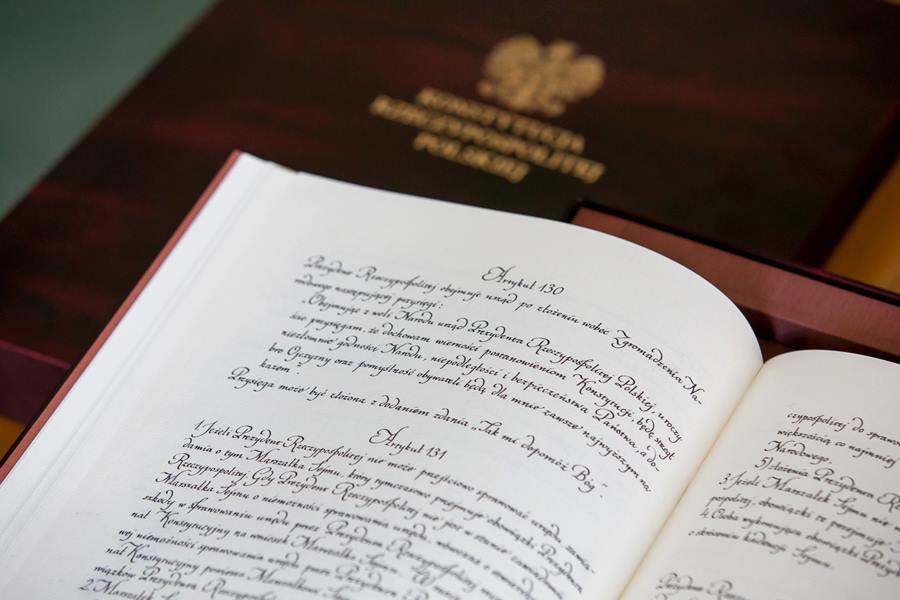 KONSTYTUCJA
RZECZYPOSPOLITEJ
POLSKIEJ
Artykuł 130
Prezydent Rzeczypospolitej obejmuje urząd po złożeniu wobec Zgromadzenia Na-
rodowego następującej przysięgi:
„Obejmując z woli Narodu urząd Prezydenta Rzeczypospolitej Polskiej, uroczy-
ście przysięgam, że dochowam wierności postanowieniom Konstytucji, będę strzegł
niezłomnie godności Narodu, niepodległości i bezpieczeństwa Państwa, a do-
bro Ojczyzny oraz pomyślność obywateli będą dla mnie zawsze najwyższym na-
kazem".
Przysięga może być złożona z dodaniem zdania „Tak mi dopomóż Bóg".
Artykuł 131
1. Jeżeli Prezydent Rzeczypospolitej nie może przejściowo sprawować urzędu, zawia-
damia o tym Marszałka Sejmu, który tymczasowo przejmuje obowiązki Prezydenta
Rzeczypospolitej. Gdy Prezydent Rzeczypospolitej nie jest w stanie zawiadomić
Marszałka Sejmu o niemożności sprawowania urzędu, wówczas o stwierdzeniu prze-
szkody w sprawowaniu urzędu przez Prezydenta Rzeczypospolitej
nał Konstytucyjny na wniosek Marszałka Sejmu. W razie
wej niemożności sprawowania urzędu przez Prezydenta
nał Konstytucyjny powierza Marszałkowi Sejmu
wiązków Prezydenta Rzeczypospolitej
2. Marszałek Sejmu
czypospolitej do sprawow
większością co najmniej
Narodowego,
5) złożenia Prezydenta R
3. Jeżeli Marszałek Sejmu nie
pospolitej, obowiązki te przejmuje
4. Osoba wykonująca obowiązki Prezydenta
o skróceniu kadencji Sejmu.